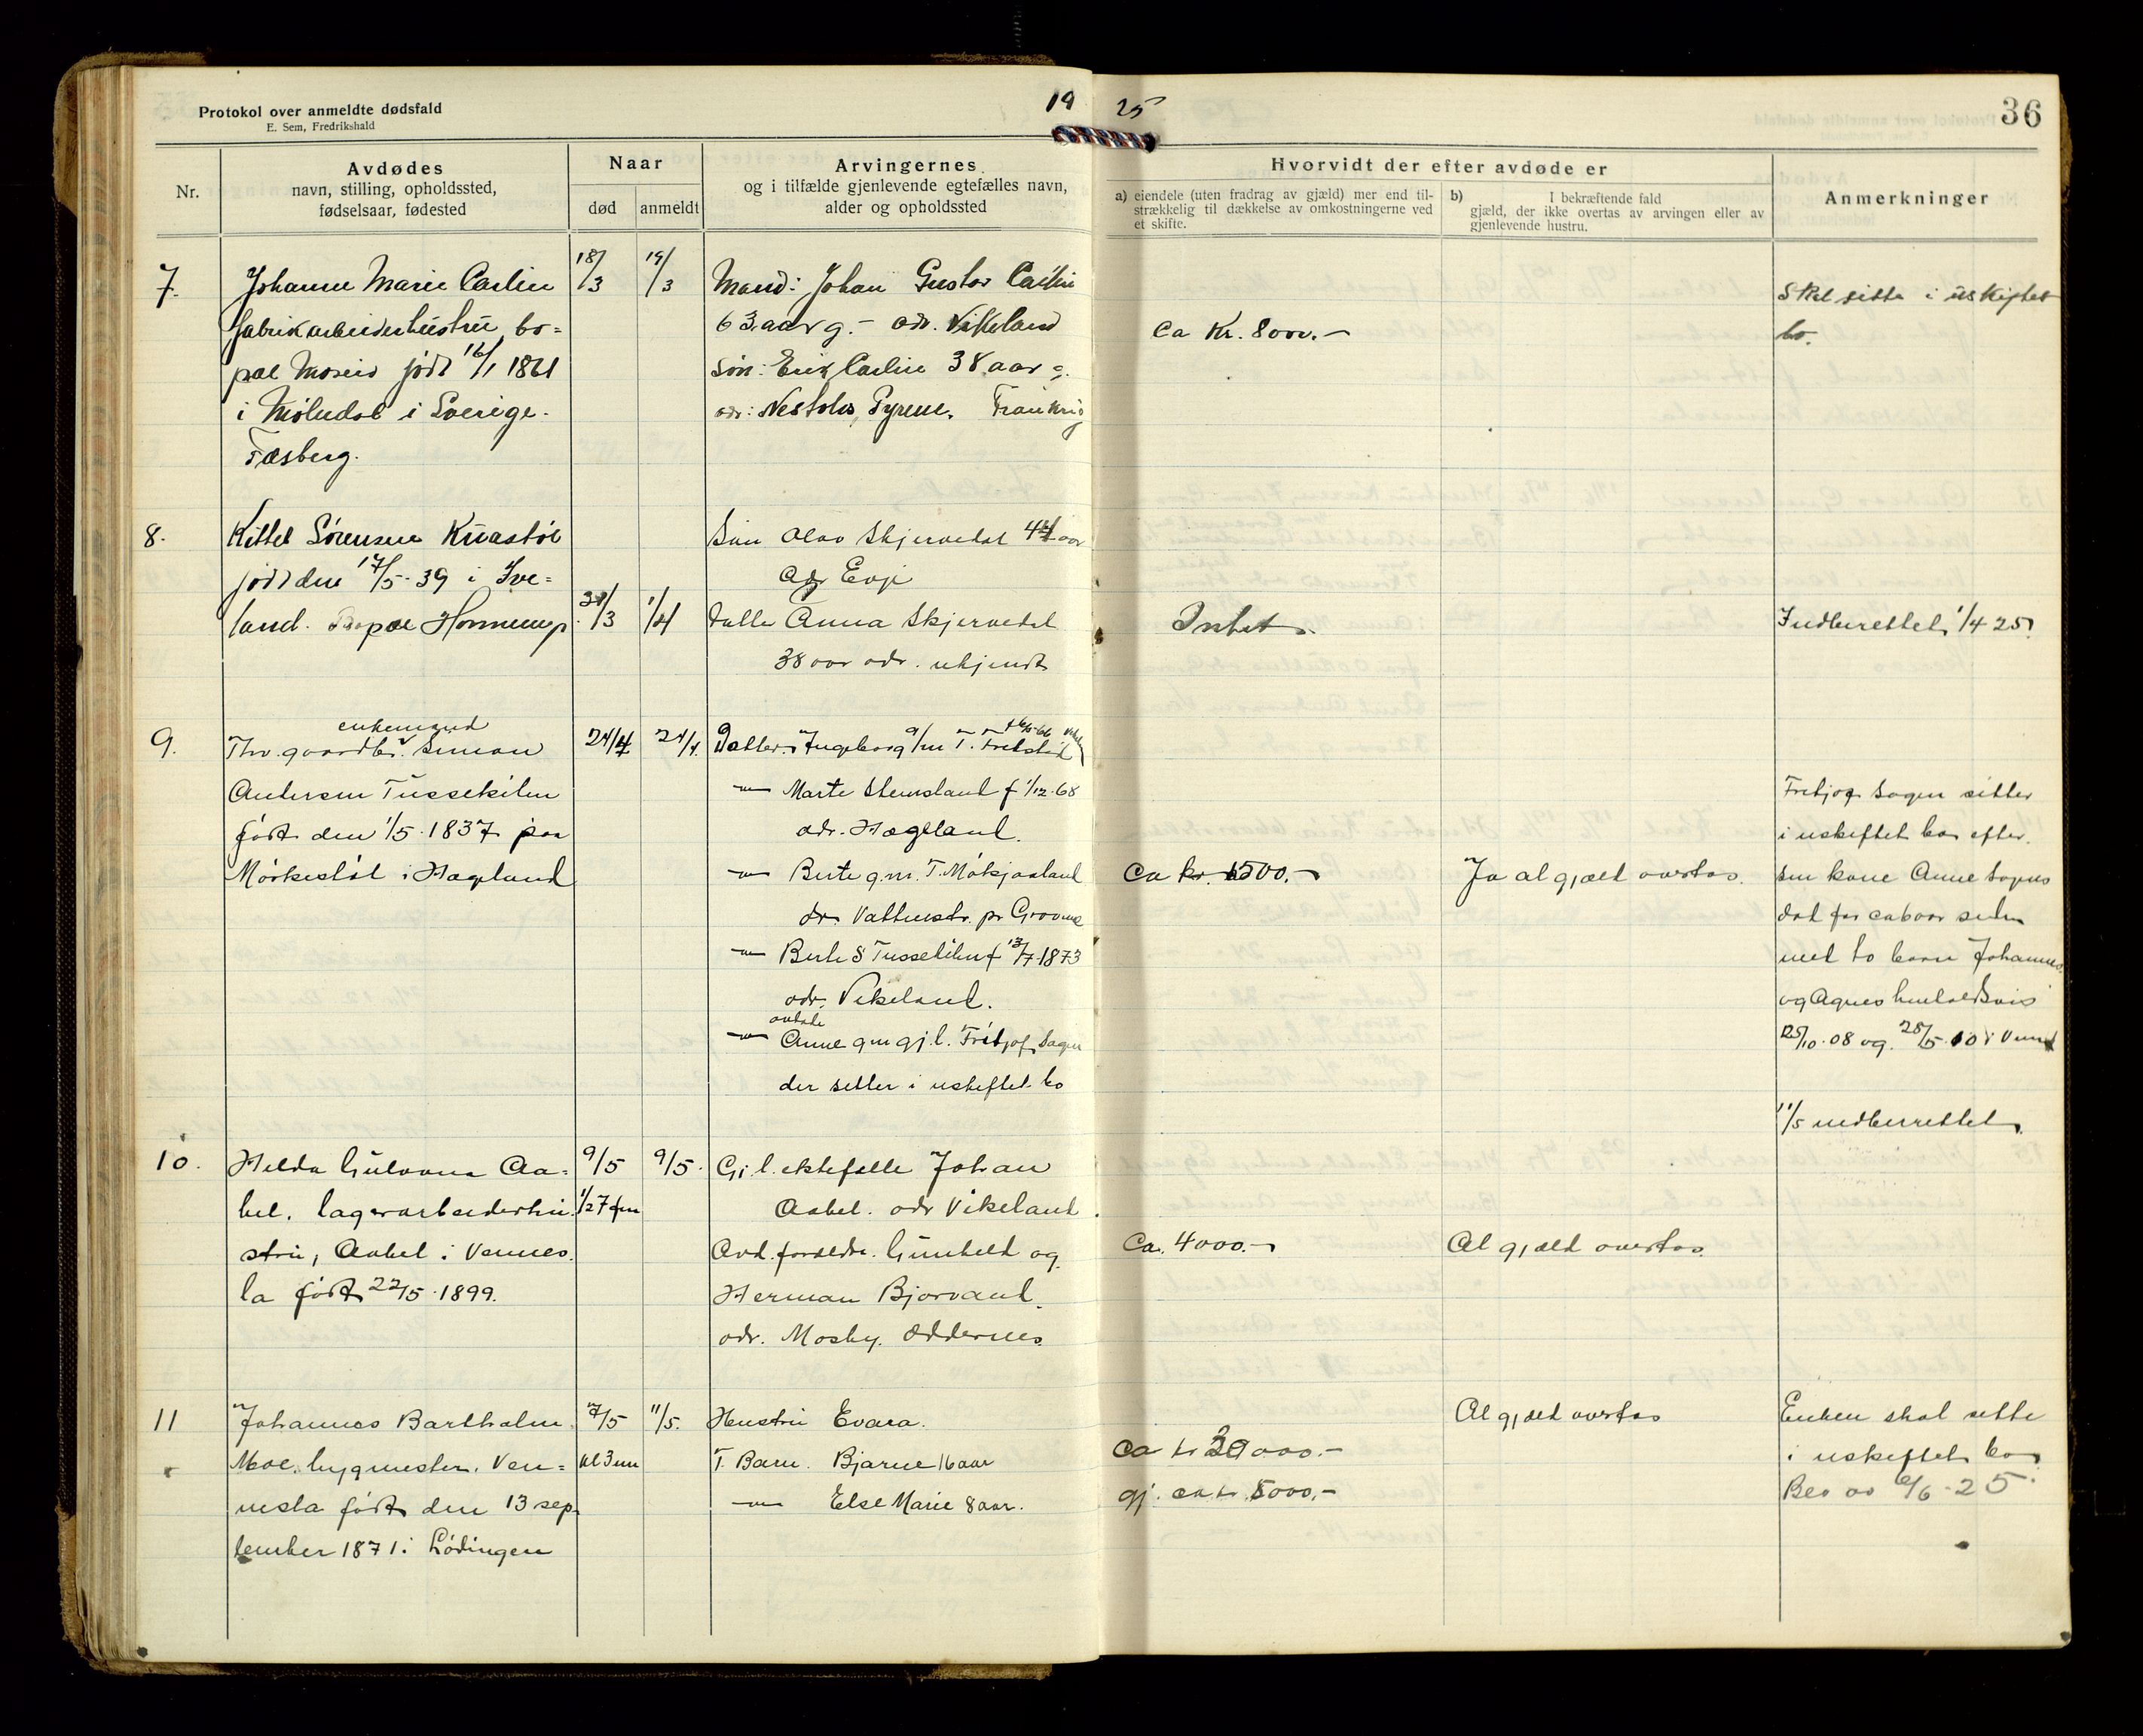 Protokol over anmeldte dødsfald
E. Sem, Fredrikshald
19 25
36
Nr.
Avdødes
navn, stilling, opholdssted,
fødselsaar, fødested
Naar
død
anmeldt
Arvingernes
og i tilfælde gjenlevende egtefælles navn,
alder og opholdssted
Hvorvidt der efter avdøde er
a) eiendele (uten fradrag av gjæld) mer end til-
strækkelig til dækkelse av omkostningerne ved
et skifte.
b) I bekræftende fald
gjæld, der ikke overtas av arvingen eller av
gjenlevende hustru.
Anmerkninger
7.
Johanne Marie Carlin
fabrikarbeiderhustru, bo=
pæl Moseid født 16/1 1861
i Mölndal i Sverige.
Fæsberg.
18/3
19/3
Mand: Johan Gustav Carlin
63 aar g. - adr. Vikeland
Søn: Erik Carlin 38 aar g.
adr: Pyrene. Frankrig
Ca Kr. 8000.-
Skal sitte i uskiftet
bo.
8.
Kittel Sørensen Kvastøl
født den 17/5-39 i Ive=
land. Bopæl Honnemyr.
/3
1/4
Søn Olav Skjervedal aar
Adr Evje
Datter Anna Skjervedal
38 aar adr. ukjendt
Intet.
Indberettet 1/4 25.
9.
enkemand
Fhv. gaardbr. Simon
Andersen Tussekilen
født den 1/5.1837 paa
Mörkestöl i Hægeland
24/4
24/4.
Datter: Ingeborg g/m T.
— Marte Stemsland f 1/12.68
adr. Hægeland.
— Berte g.m. T.
adr. Vatnestr. pr Groovane
— Berte S Tussekilen f 13/7.1873
adr. Vikeland.
avdøde
— Anne gm gj.l. Fritjof Sagen
der sitter i uskiftet bo
Ca kr. 1500.-
Ja al gjæld overtas.
Fritjof Sagen sitter
i uskiftet bo efter
sin kone Anne Sagens
død for ca 6 aar siden
med to barn Johannes
og Agnes henholdsvis
25/10.08 og 28/5.10
11/5 indberettet.
10.
Hilda Gulovna Aa=
bel. lagerarbeiderhu=
stru, Aabel i Vennes=
la født 22/5.1899.
9/5
1/2 7 fm
9/5.
Gj.l. ektefelle Johan
Aabel. adr Vikeland.
Avd. forældre. Gunhild og
Herman Bjorvand.
adr. Mosby. Oddernes.
Ca. 4000.-
Al gjæld overtas.
11
Johannes Bartholm.
Moe. bygmester. Ven=
nesla født den 13 sep=
tember 1871 i Lödingen
7/5
kl 3 em
11/5.
Hustru Evara.
T. Barn. Bjarne 16 aar
— Else Marie 8 aar.
Ca kr 000.-
gj. ca kr. 5000.-
Al gjæld overtas
Enken skal sitte
i uskiftet bo
/6-25